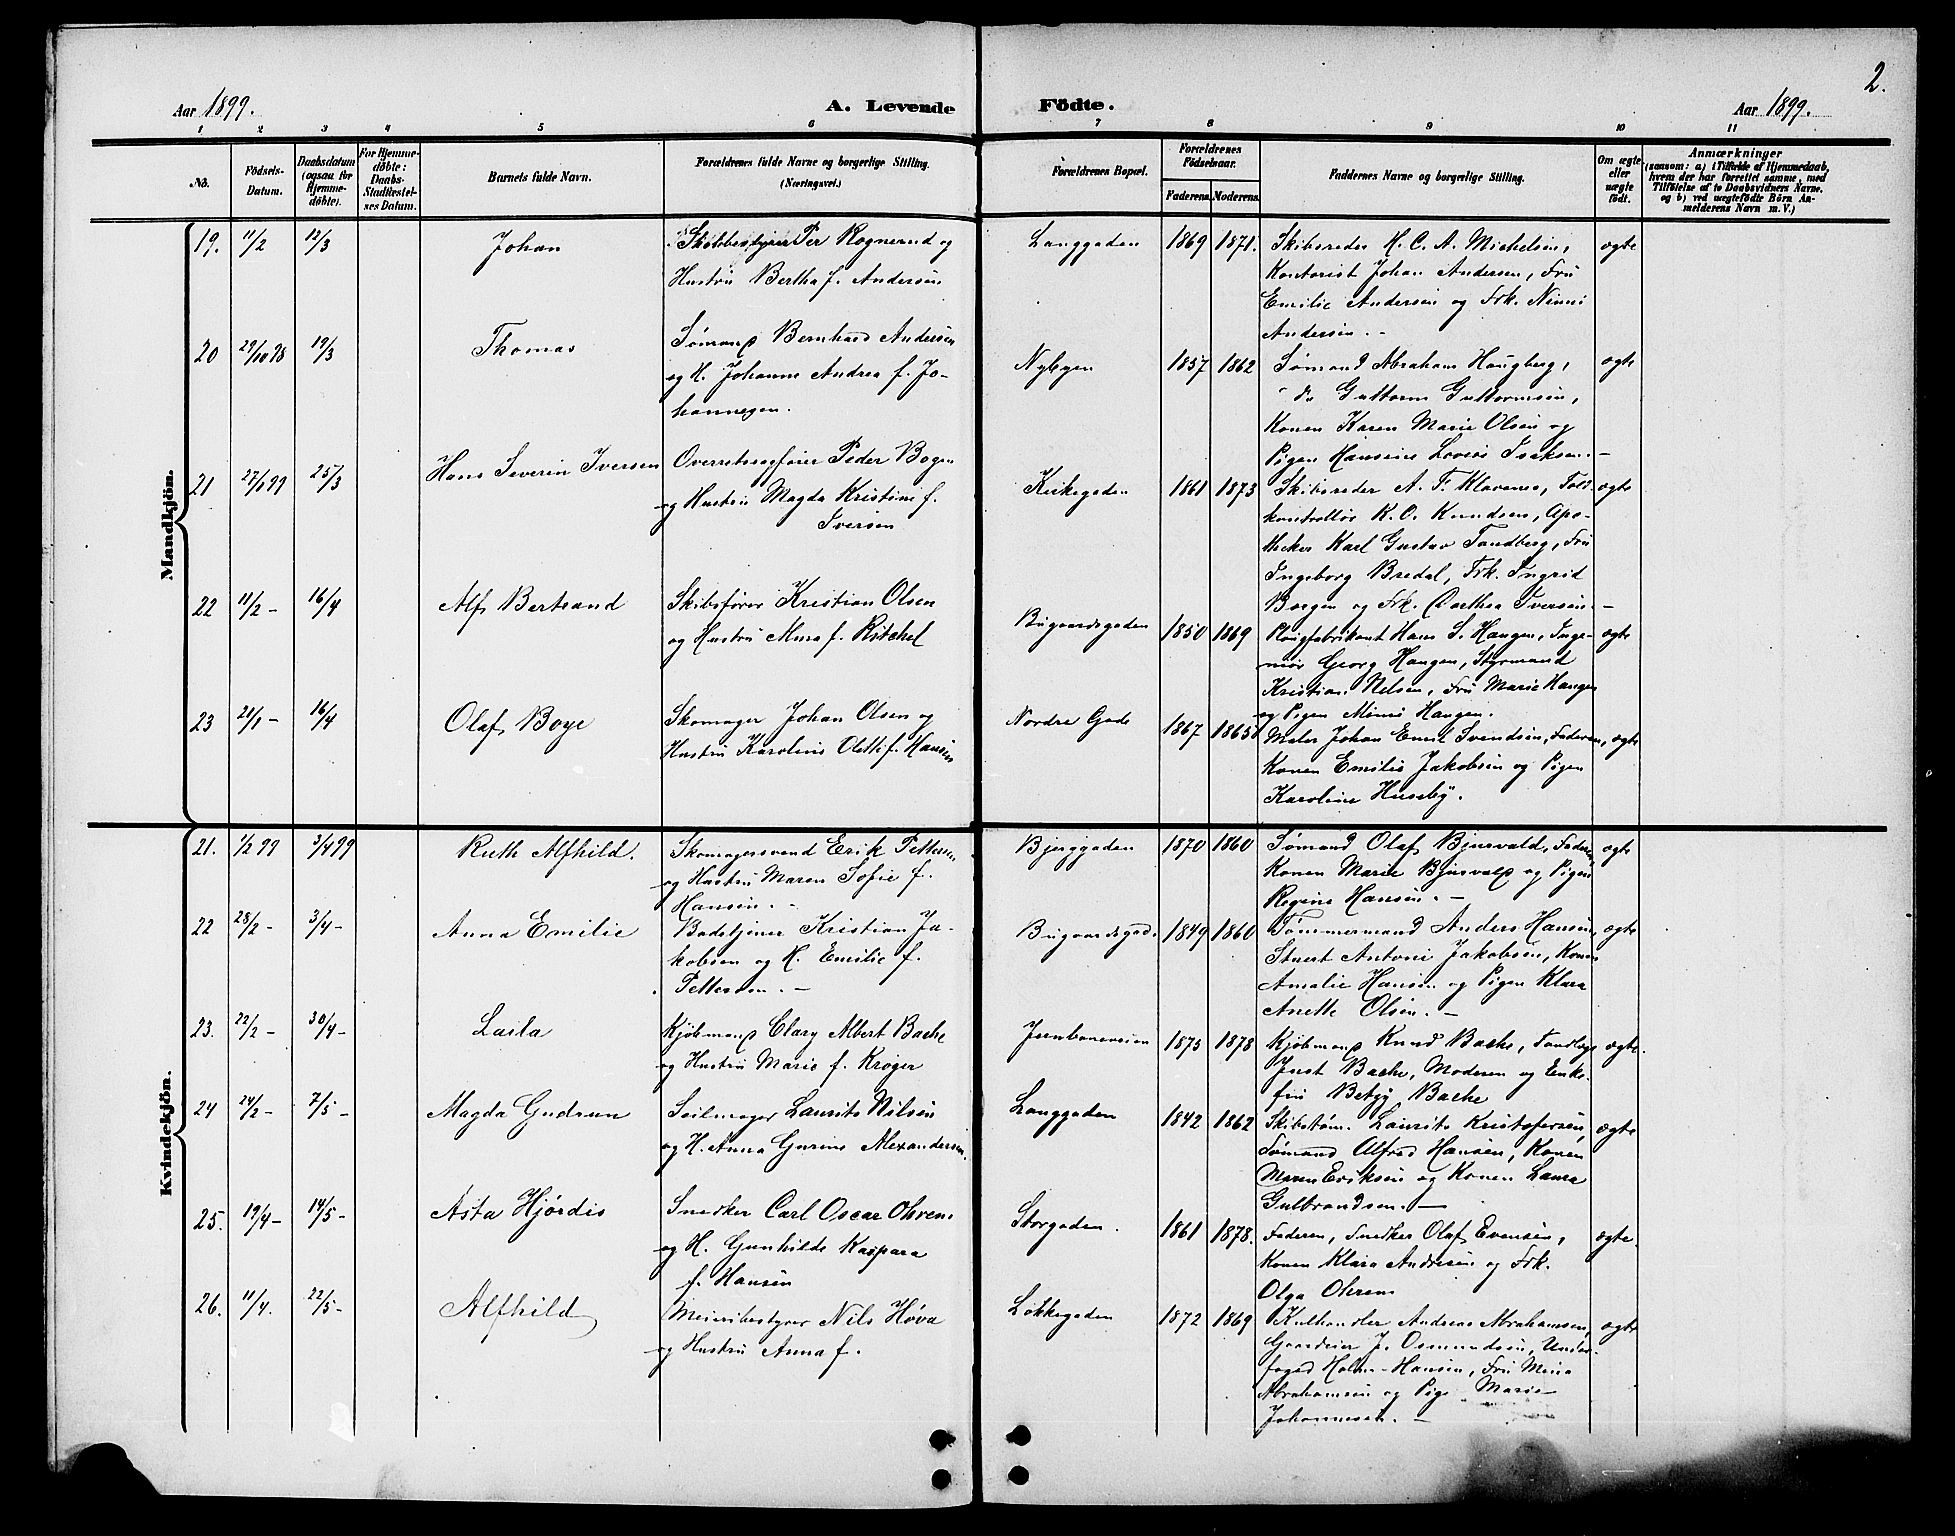 2.
Aar 1899. A. Levende Födte. Aar 1899.
1 2 3 4 5 6 7 8 9 10 11
No.
Födsels-
Datum.
Daabsdatum
(ogsaa for
Hjemme-
döbte).
For Hjemme-
döbte:
Daabs-
Stadfæstel-
ses Datum.
Barnets fulde Navn.
Forældrenes fulde Navne og borgerlige Stilling.
(Næringsvei.)
Forældrenes Bopæl.
Forældrenes
Födselsaar.
Faderens. Moderens.
Faddernes Navne og borgerlige Stilling.
Om ægte
eller
uægte
født.
Anmærkninger
(saasom: a) i Tilfælde af Hjemmedaab,
hvem der har forrettet samme, med
Tilföielse af to Daabsvidners Navne.
og b) ved uægtefødte Börn An-
melderens Navn m. V.)
Mandkjön.
19. 11/2 12/3 Johan
Per Rognerud og
Hustru Bertha f. Andersen
Langgaden 1869 1871.
Skibsreder H. C. A. Michelsen,
Kontorist Johan Andersen, Fru
Emilie Andersen og Frk. Ninni
Andersen. -
ægte
20 29/10 98 19/3 Thomas
Sømand Bernhard Andersen
og H. Johanne Andrea f. Jo-
hannesen.
Nybyen 1857 1862
Sømand Abraham Haugberg,
do Guttorm Guttormsen,
Konen Karen Marie Olsen og
Pigen Hansine Lovise Isaksen. -
ægte
21 27/1 99 25/3 Hans Severin Iversen
Overretssagfører Peder Bogen
og Hustru Magda Kristine f.
Iversen
Kirkegaden 1861 1873
Skibsreder A. F. Klaveness, Told-
kontrollør K. O. Knudsen, Apo-
theker Karl Gustav Tandberg, Fru
Ingeborg Bredal, Frk. Ingrid
Borgen og Frk. Dorthea Iversen. -
ægte
22 11/2 - 16/4 Alf Bertrand
Skibsfører Kristian Olsen
og Hustru f. Kitchel
Bugaardsgaden 1850 1869
Plougfabrikant Hans S. Haugen, Inge-
niør Georg Haugen, Styrmand
Kristian Nelsen, Fru Marie Haugen
og Pigen Minni Haugen.
ægte
23 20/1 - 16/4 Olaf Boye
Skomager Johan Olsen og
Hustru Karoline Oleth f. Hansen
Nordre Gade 1867 1865
Maler Johan Emil Svendsen, Faderen,
Konen Emilie Jakobsen og Pigen
Karoline Huseby.
ægte
Kvindekjön.
21. 1/2 99 3/4 99 Ruth Alfhild.
Skomagersvend Erik Pettersen
og Hustru Maren Sofie f.
Hansen. -
Bjerggaden 1870 1860
Sømand Olaf Bjusvald, Faderen,
Konen Marie Bjusvald og Pigen
Regine Hansen. -
ægte
22 28/2 - 3/4 - Anna Emilie
Badetjener Kristian Ja-
kobsen og H. Emilie f.
Pettersen. -
Bugaardsgad. 1849 1860
Tømmermand Anders Hansen,
Stuert Antoni Jakobsen, Konen
Amalie Hansen og Pigen Klara
Anette Olsen. -
ægte
23. 22/2 - 30/4 - Laila
Kjøbmand Clary Albert Bache
og Hustru Marie f. Krøger
Jernbaneveien 1875 1878
Kjøbmand Knud Bache, Tandlæge
Just Bache, Moderen og Enke-
fru Betsy Bache
ægte.
24 24/2 - 7/5 - Magda Gudrun
Seilmager Laurits Nilsen
og H. Anna Gurine Alexandersen.
Langgaden 1842 1862
Skibstøm. Laurits Kristofersen,
Sømand Alfred Hansen, Konen
Maren Eriksen og Konen Laura
Gulbrandsen. -
ægte
25. 19/4 - 14/5 - Asta Hjørdis
Snedker Carl Oscar Ohren
og H. Gunhilde Kaspara
f. Hansen
Storgaden. 1861 1878.
Faderen, Snedker Olaf Evensen,
Konen Klara Andresen og Frk.
Olga Ohren
ægte.
26. 11/4. 22/5 - Alfhild
Meieribestyrer Nils Høva
og Hustru Anna f.
Løkkegaden 1872 1869
Kulhandler Andreas Abrahamsen,
Gaardeier J. Osmundsen, Under-
foged Holm-Hansen, Fru Mina
Abrahamsen og Pige Marie
Johannesen. -
ægte